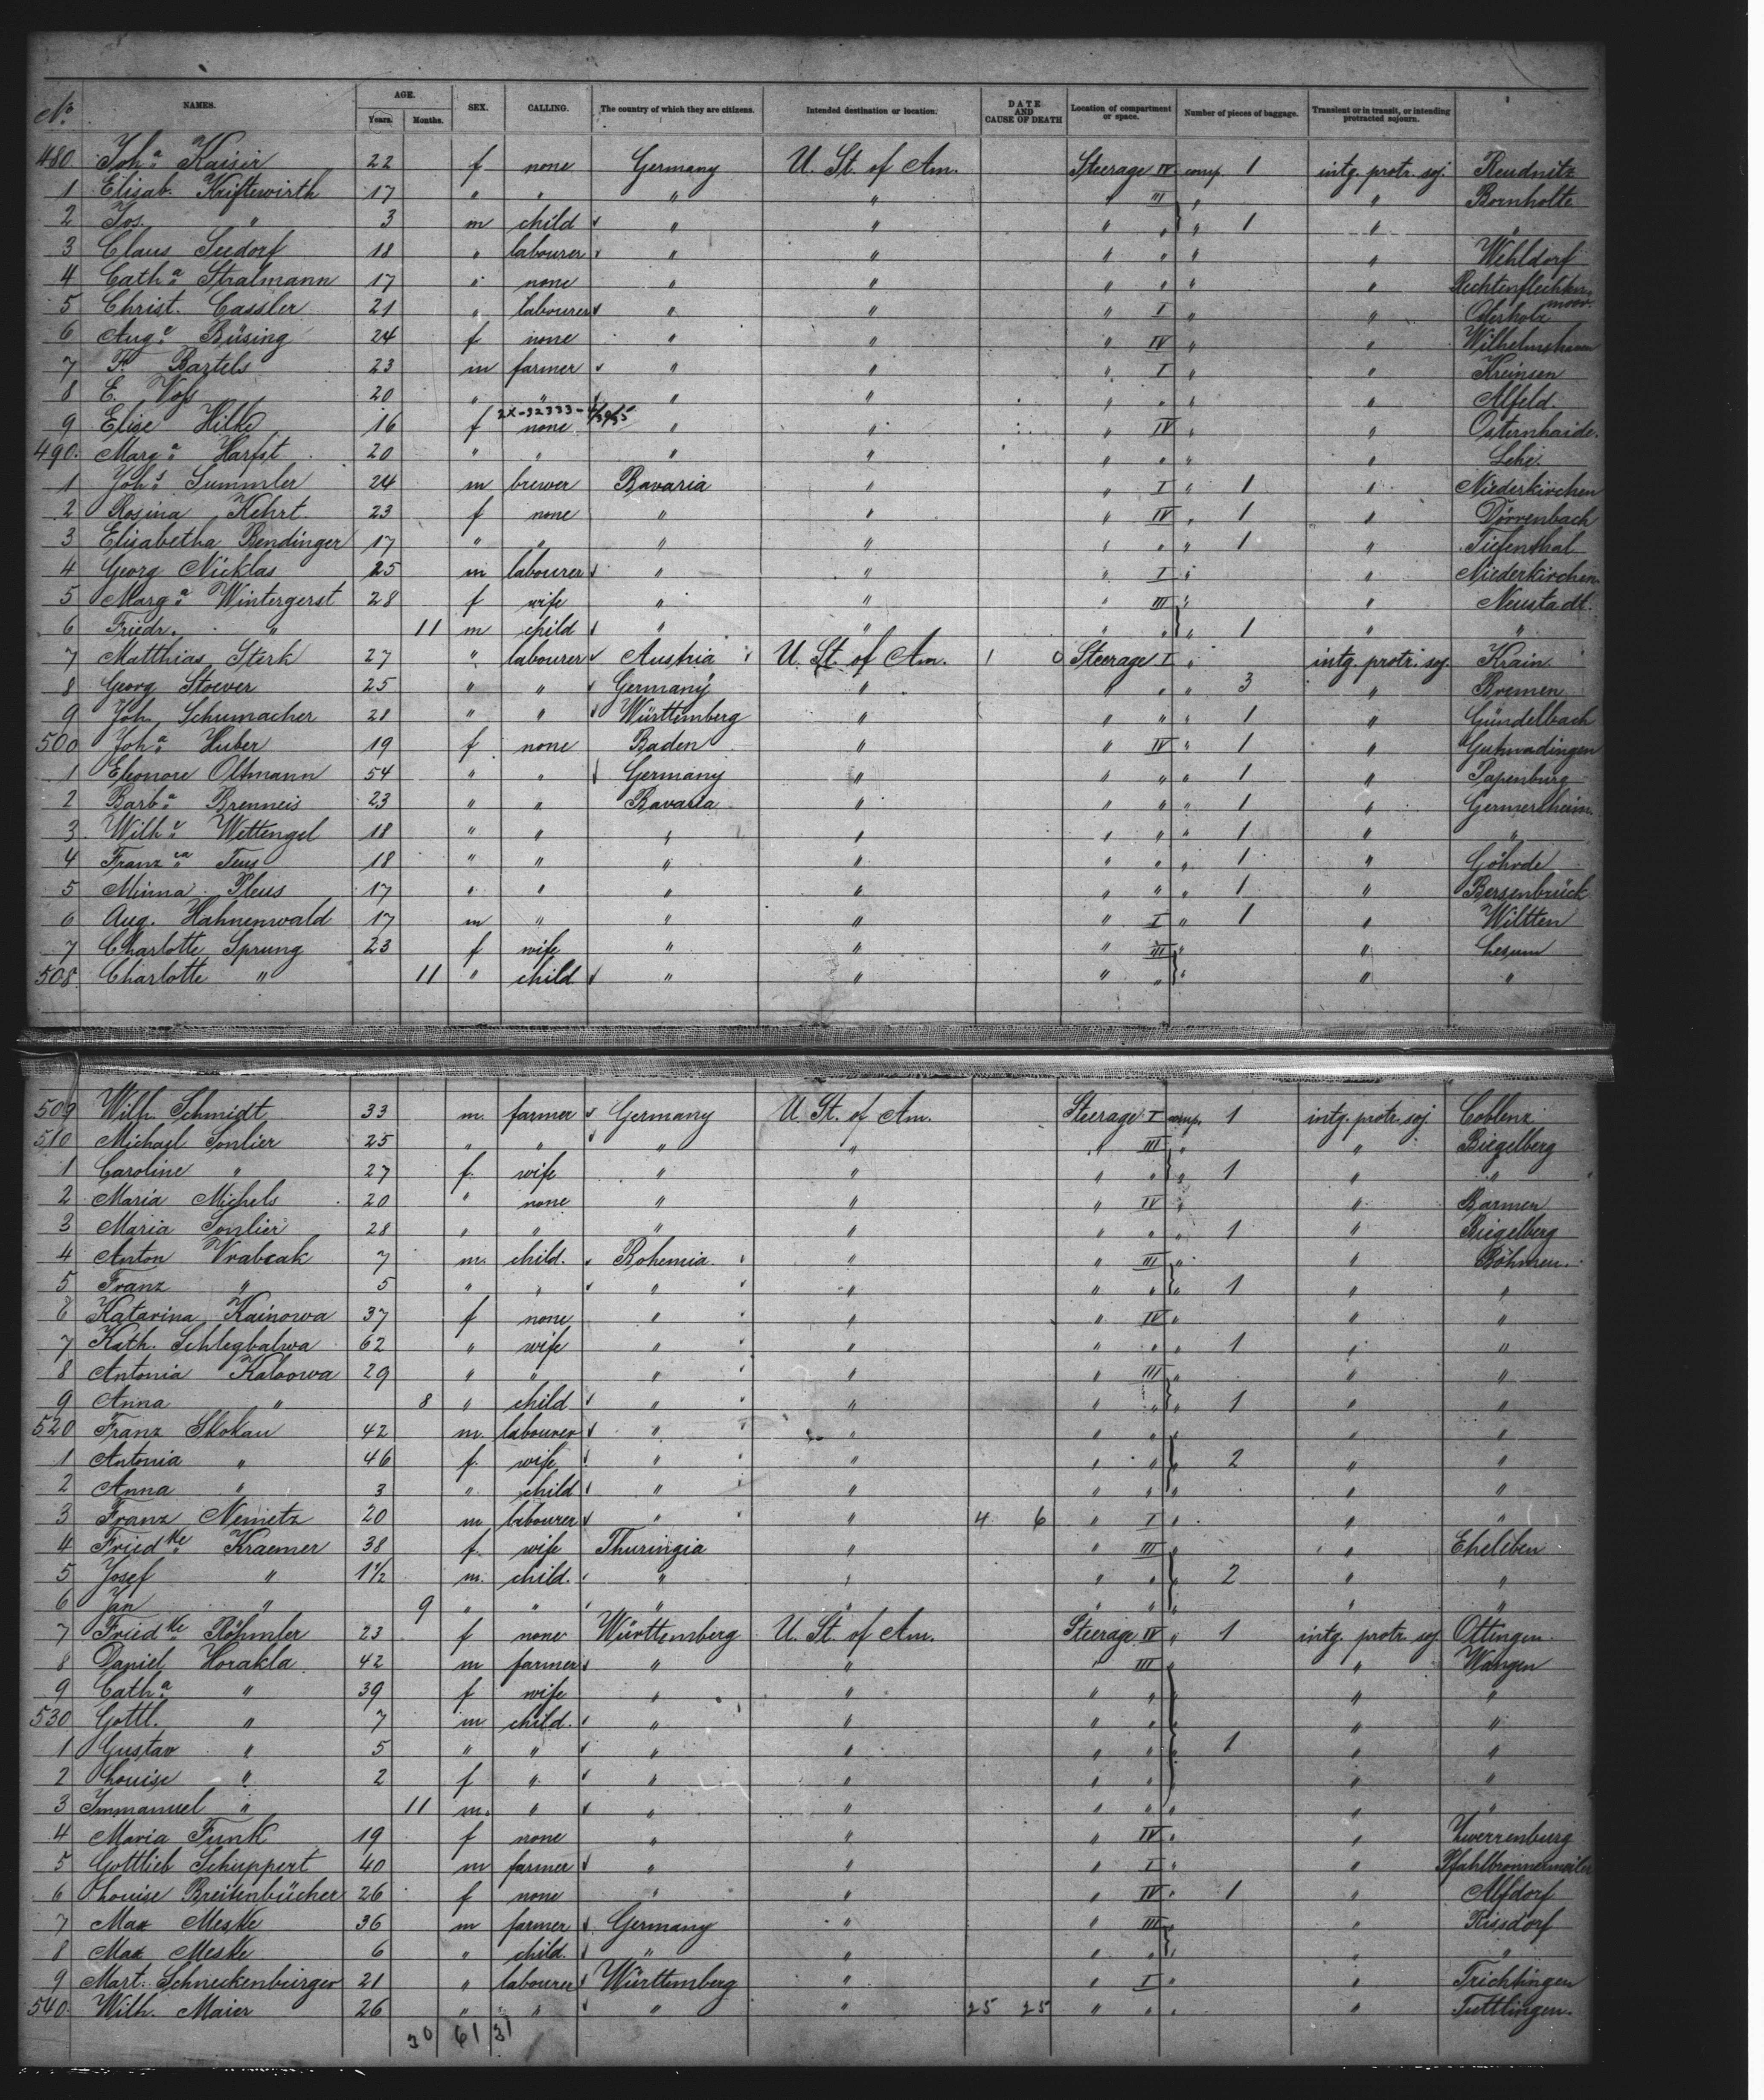 No. NAMES. AGE. Years. Months. SEX. CALLING. The country of which they are citizens. Intended destination or location. DATE AND CAUSE OF DEATH Location of compartment or space. Number of pieces of baggage. Transient or in transit, or intending protracted sojourn.
480 Joh.a Kaisir 22 f none Germany U. St. of Am. Steerage IV comp. 1 intg. protr. soj. Reudnitz
1 Elisab. Kriftewirth 17 " " " " " III " " Bornholte
2 Jos. " 3 m child " " " " " 1 " "
3 Claus Seedorf 18 " labourer " " " " " " Wehldorf
4 Cath.a Stralmann 17 " none " " " " " "
5 Christ. Cassler 21 " labourer " " " I " " Osterholz
6 Aug.e Büsing 24 f none " " " IV " " Wilhelmshaven
7 Fr. Bartels 23 m farmer " " " I " " Kreinsen
8 E. Voss 20 " " " " " " " " Alfeld
9 Elise Hilke 16 f none " " " IV " " Osternhaide.
490. Marg.a Harfst 20 " " " " " " " " Lehe.
1 Joh.s Summler 24 m brewer Bavaria " " I " 1 " Niederkirchen
2 Rosina Kehrt. 23 f none " " " IV " 1 " Dörrenbach
3 Elisabetha Bendinger 17 " " " " " " " 1 " Tiefenthal
4 Georg Nicklas 25 m labourer " " " I " " Niederkirchen
5 Marg.a Wintergerst 28 f wife " " " III " " Neustadt.
6 Friedr. " 11 m child " " " " " 1 " "
7 Matthias Sterk 27 " labourer Austria U. St. of Am. 1 0 Steerage I " intg. protr. soj. Krain
8 Georg Stoever 25 " " Germany " " " " 3 " Bremen
9 Joh. Schumacher 28 " " Württemberg " " " " 1 " Gündelbach
500 Joh.a Huber 19 f none Baden " " IV " 1 " Gutmadingen
1 Eleonore Oltmann 54 " " Germany " " " " 1 " Papenburg
2 Barb.a Brenneis 23 " " Bavaria " " " " 1 " Germersheim.
3 Wilh.e Wettengel 18 " " " " " " " 1 " "
4 Franz.ca Teus 18 " " " " " " " 1 " Göhrde
5 Minna Pleus 17 " " " " " " " 1 " Bersenbrück
6 Aug. Hahnenwald 17 m " " " " I " 1 " Wiltten
7 Charlotte Sprung 23 f wife " " " III " " Lesum
508. Charlotte " 11 " child " " " " " " "
509 Wilh. Schmidt 33 m. farmer Germany U. St. of Am. Steerage I comp. 1 intg. protr. soj. Coblenz
510 Michael Sonlier 25 " " " " " III " " Biegelberg
1 Caroline " 27 f. wife " " " " " 1 " "
2 Maria Michels 20 " none " " " IV " " Barmen
3 Maria Sonlier 28 " " " " " " " 1 " Biegelberg
4 Anton Vrabcak 7 m. child. Bohemia " " III " " Böhmen.
5 Franz " 5 " " " " " " " 1 " "
6 Katarina Kainowa 37 f none " " " IV " " "
7 Kath. Schlegbalwa 62 " wife " " " " " 1 " "
8 Antonia Kaloowa 29 " " " " " III " " "
9 Anna " 8 " child " " " " " 1 " "
520 Franz Skokan 42 m. labourer " " " " " " "
1 Antonia " 46 f. wife " " " " " 2 " "
2 Anna " 3 " child " " " " " " "
3 Franz Nemetz 20 m labourer " " 4 6 " I " " "
4 Fried.ke Kraemer 38 f. wife Thuringia " " III " " Eheleben
5 Josef " 1½ m. child. " " " " " 2 " "
6 Jan " 9 " " " " " " " " "
7 Fried.ke Röhmler 23 f none Württemberg U. St. of Am. Steerage IV " 1 intg. protr. soj. Ottingen.
8 Daniel Horakla 42 m farmer " " " III " Wangen
9 Cath.a " 39 f wife " " " " " " "
530 Gottl. " 7 m child. " " " " " " "
1 Gustav " 5 " " " " " " " 1 " "
2 Louise " 2 f " " " " " " "
3 Immanuel " 11 m. " " " " " " " "
4 Maria Funk 19 f none " " " IV " "
5 Gottlieb Schuppert 40 m farmer " " " I " " Pfahlbronnermeiler
6 Louise Breitenbücher 26 f none " " " IV " 1 " Alfdorf
7 Max Meske 36 m farmer Germany " " III " " Rissdorf
8 Max Meske 6 " child. " " " " " " "
9 Mart. Schneckenburger 21 " labourer Württemberg " " I " " Trichtingen
540. Wilh. Maier 26 " " " " 25 25 " " " " Tuttlingen.
30 61 31